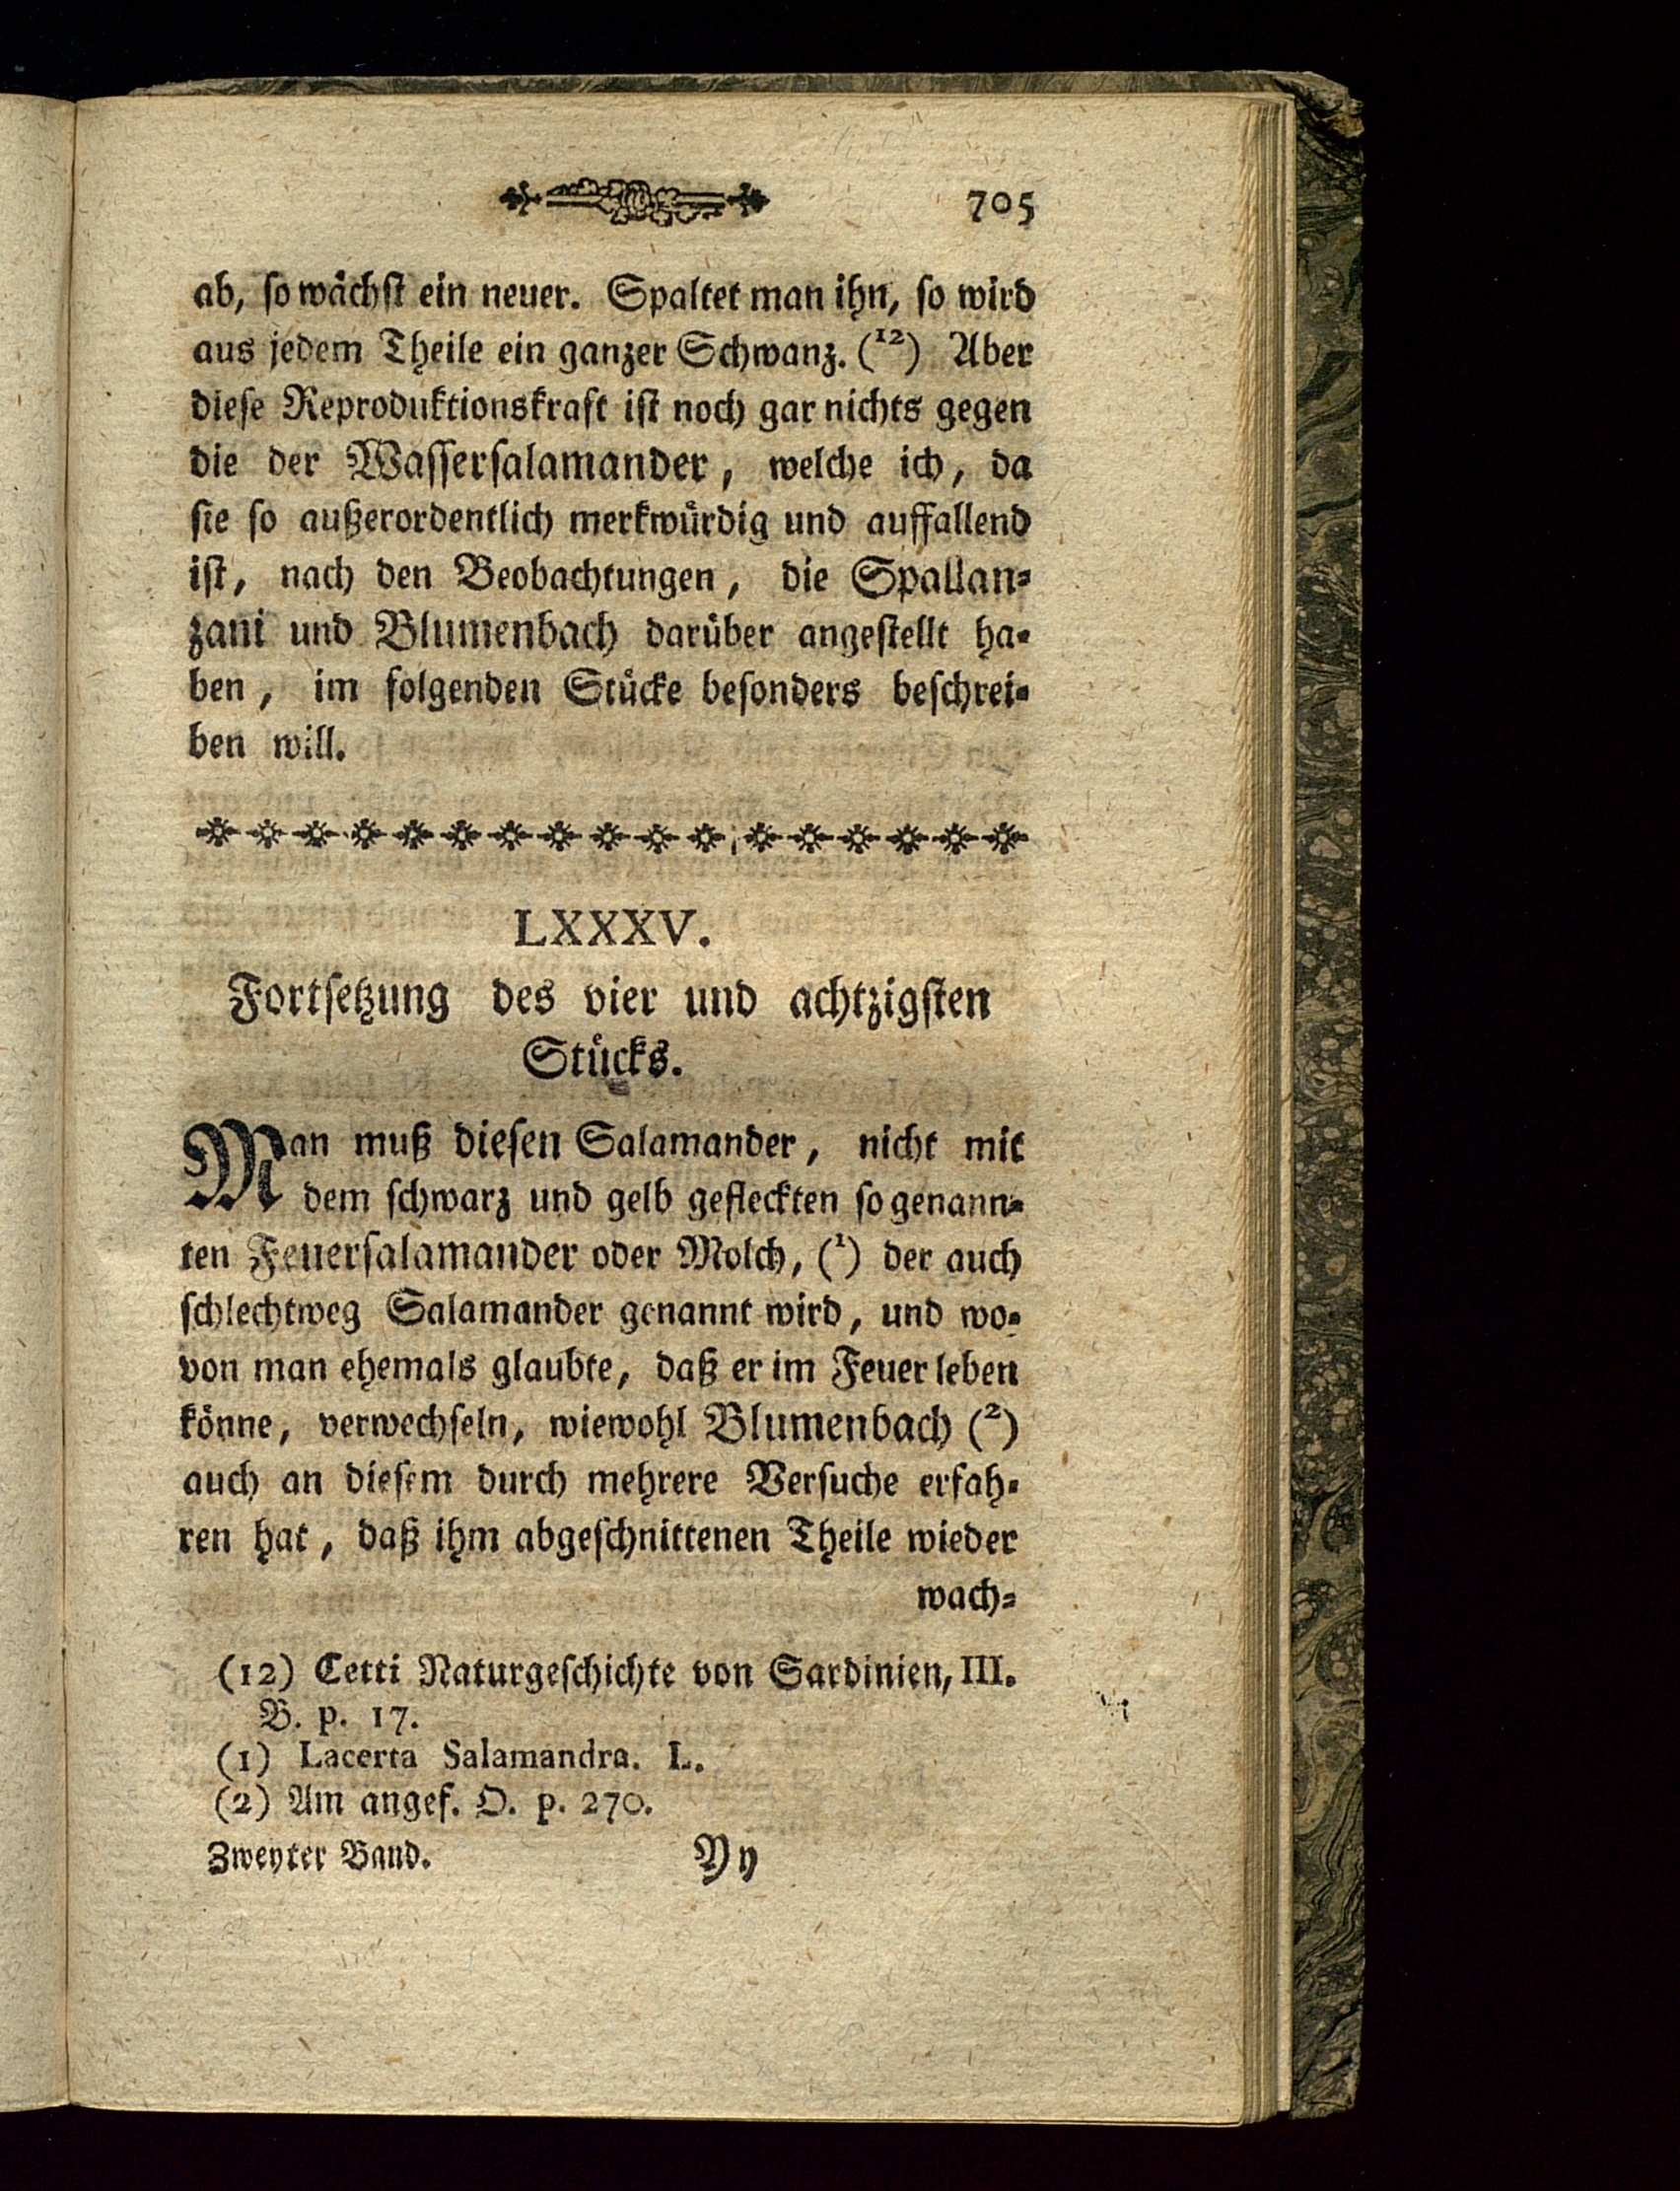 705
ab, ſo wächſt ein neuer. Spaltet man ihn, ſo wird
aus jedem Theile ein ganzer Schwanz. (¹²) Aber
dieſe Reproduktionskraft iſt noch gar nichts gegen
die der Waſſerſalamander, welche ich, da
ſie ſo außerordentlich merkwürdig und auffallend
iſt, nach den Beobachtungen, die Spallan-
zani und Blumenbach darüber angeſtellt ha-
ben, im folgenden Stücke beſonders beſchrei-
ben will.
LXXXV.
Fortſetzung des vier und achtzigſten
Stücks.
Man muß dieſen Salamander, nicht mit
dem ſchwarz und gelb gefleckten ſo genann-
ten Feuerſalamander oder Molch, (¹) der auch
ſchlechtweg Salamander genannt wird, und wo-
von man ehemals glaubte, daß er im Feuer leben
könne, verwechſeln, wiewohl Blumenbach (²)
auch an dieſem durch mehrere Verſuche erfah-
ren hat, daß ihm abgeſchnittenen Theile wieder
wach-
(12) Cetti Naturgeſchichte von Sardinien, III.
B. p. 17.
(1) Lacerta Salamandra. L.
(2) Am angef. O. p. 270.
Zweyter Band. Yy